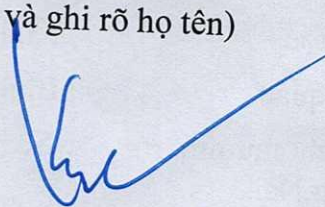 và ghi rõ họ tên)